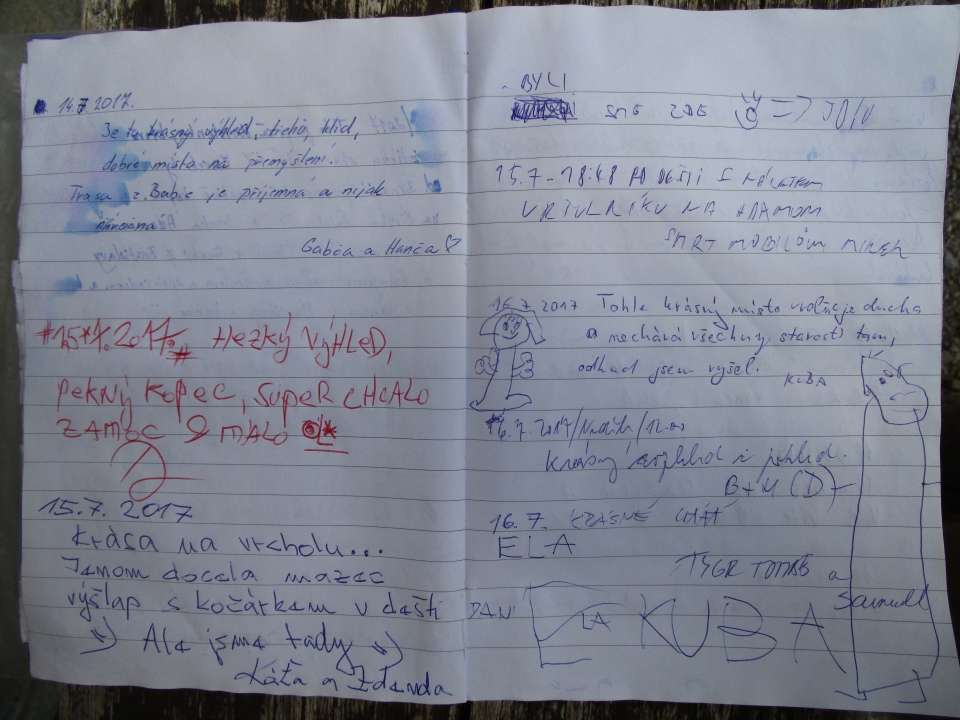 14.7.2017.
Je tu krásný výhled, ticho, klid,
dobré místo na přemýšlení.
Trasa z Babic je příjemná a nijak
náročná
Gabča a Hanča
15.7.2017. HEZKÝ VÝHLED,
PEKNÝ KOPEC, SUPER CHCALO
ZÁMOC A MÁLO
15.7.2017
Krása na vrcholu...
Jenom docela mazec
výšlap s kočárkem v dešti
Ale jsme tady
Káťa a Zdenda
BYLI
SME ZDE
15.7 - 18:48 PO DEŠTI S
VRTULNÍKU NA
SMRT MOBILŮM MIREK
16.7.2017 Tohle krásný místo uvolňuje ducha
a nechává všechny starosti tam,
odkud jsem vyšel.
KUBA
16.7.2017/Neděle/12.00
Krásný výhled i pohled.
B+M (D)
16.7. KRÁSNÉ
ELA
TYGR TOMÁŠ a
Samuel
DAN
ELA
KUBA